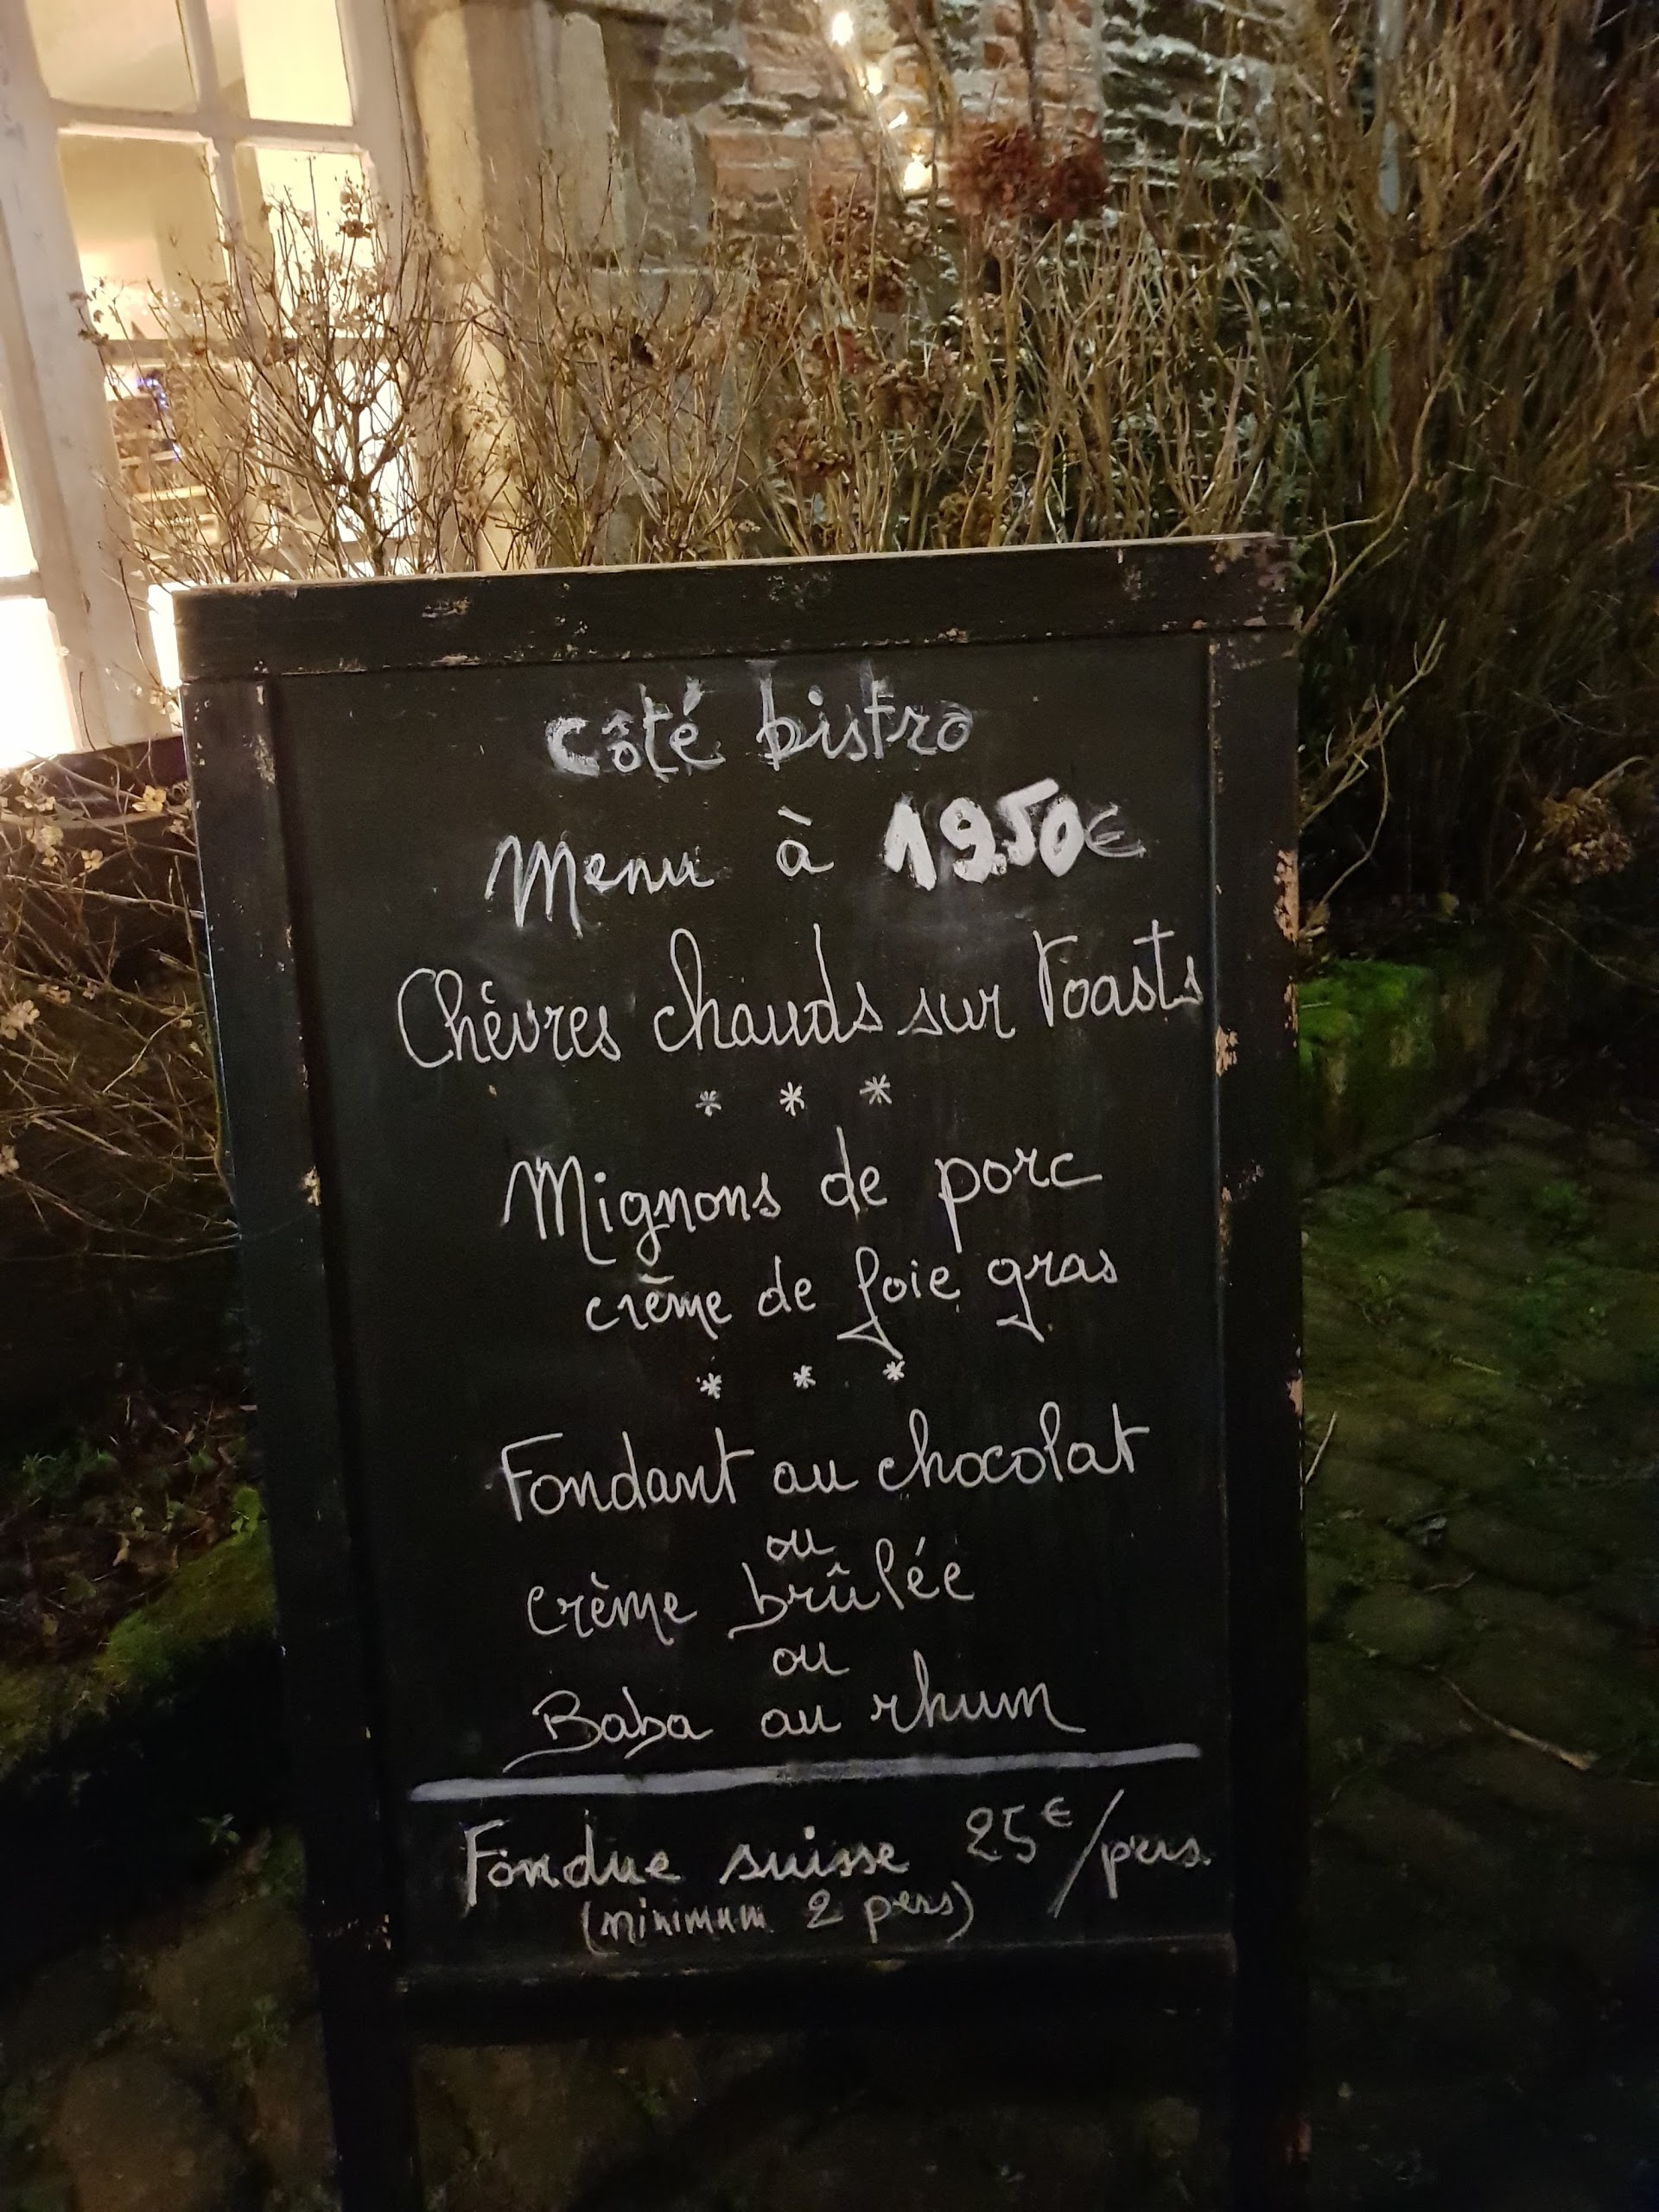 côté bistro
Menu à 19.50€
Chèvres chauds sur Toasts
* * *
Mignons de porc
crème de foie gras
* * *
Fondant au chocolat
ou
crème brûlée
ou
Baba au rhum
Fondue suisse 25€/pers.
(minimum 2 pers)